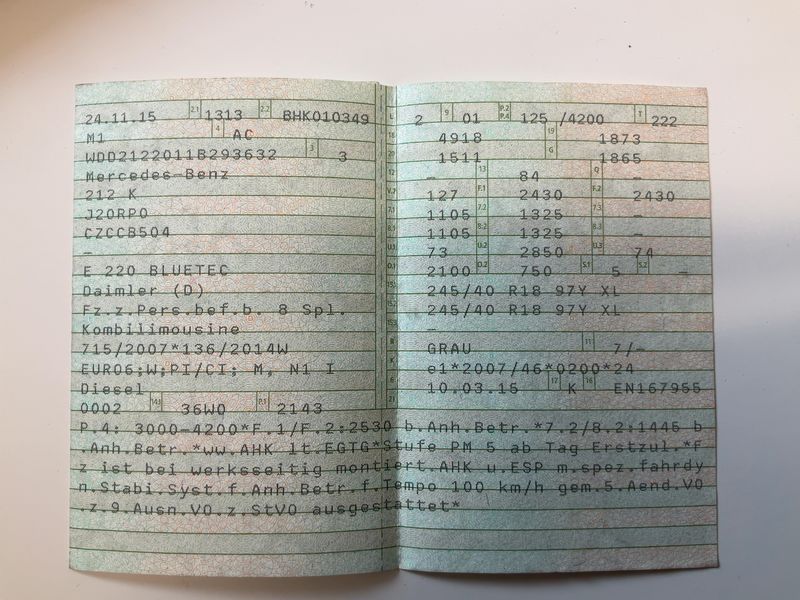 24.11.15 2.1 1313 2.2 BHK010349
M1 4 AC
WDD2122011B293632 3 3
Mercedes-Benz
212 K
J20RP0
CZCCB504
–
E 220 BLUETEC
Daimler (D)
Fz.z.Pers.bef.b. 8 Spl.
Kombilimousine
715/2007*136/2014W
EURO6;W;PI/CI; M, N1 I
Diesel
0002 14.1 36W0 P.1 2143
L 2 9 01 P.2 P.4 125 /4200 T 222
18 4918 19 1873
20 1511 G 1865
12 – 13 84 Q –
V.7 127 F.1 2430 F.2 2430
7.1 1105 7.2 1325 7.3 –
8.1 1105 8.2 1325 8.3 –
U.1 73 U.2 2850 U.3 74
O.1 2100 O.2 750 S.1 5 S.2 –
15.1 245/40 R18 97Y XL
15.2 245/40 R18 97Y XL
15.3 –
R GRAU 11 7/–
K e1*2007/46*0200*24
6 10.03.15 17 K 16 EN167955
21
P.4: 3000-4200*F.1/F.2:2530 b.Anh.Betr.*7.2/8.2:1445 b
.Anh.Betr.*ww.AHK lt.EGTG*Stufe PM 5 ab Tag Erstzul.*F
z ist bei werksseitig montiert.AHK u.ESP m.spez.fahrdy
n.Stabi.Syst.f.Anh.Betr.f.Tempo 100 km/h gem.5.Aend.VO
.z.9.Ausn.VO.z.StVO ausgestattet*